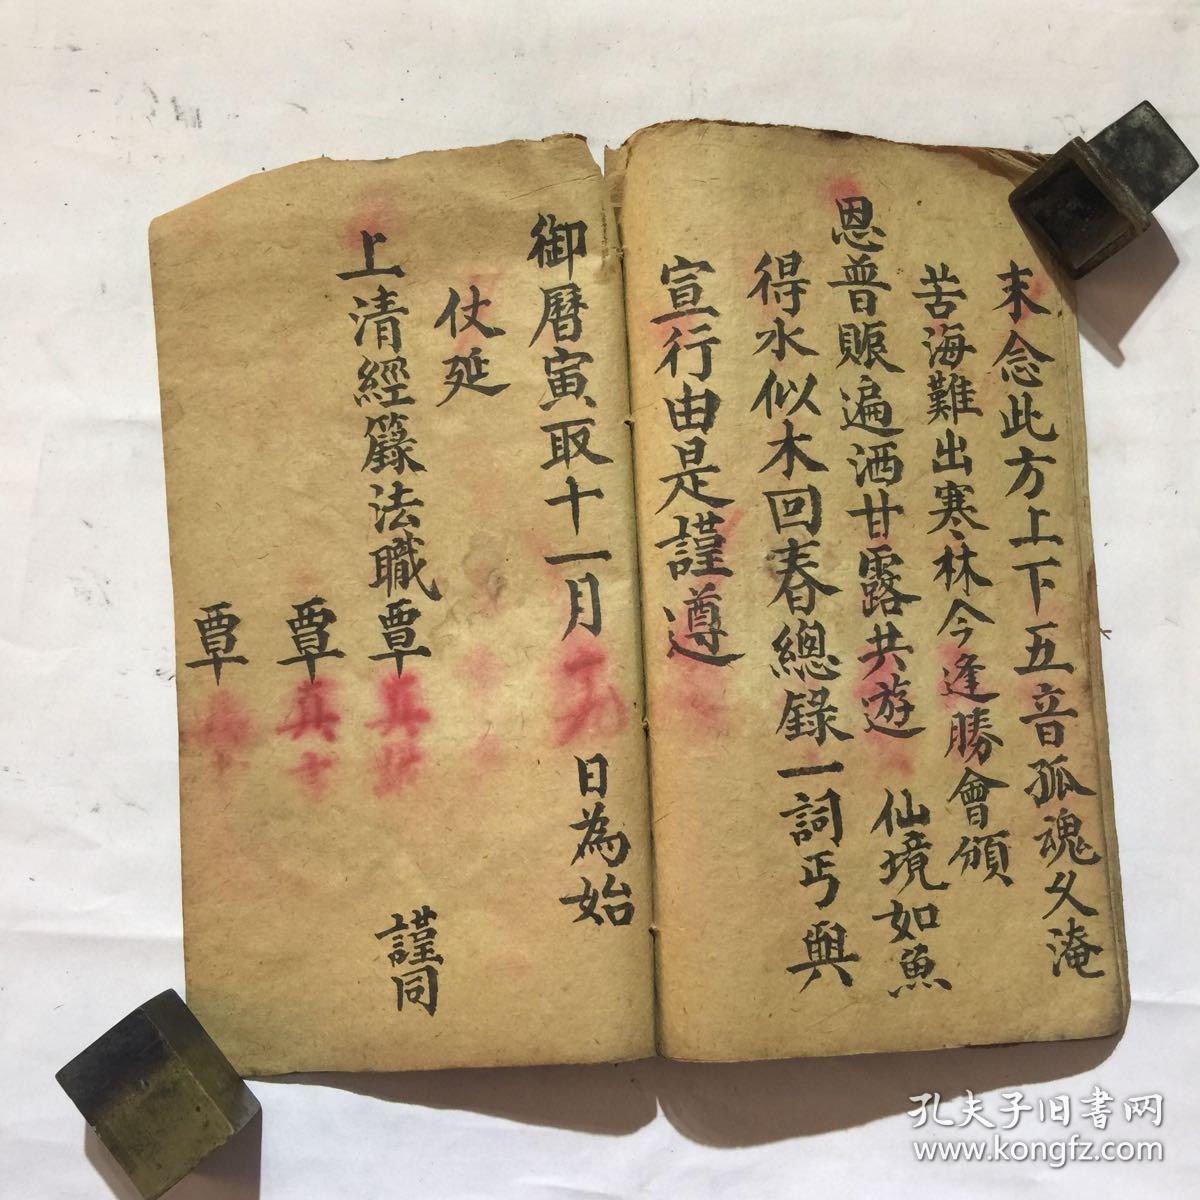 末念此方上下五音孤魂久淹
苦海難出寒林今逢勝會頒
恩普賑遍洒甘露共遊仙境如魚
得水似木回春總錄一詞丐與
宣行由是謹遵
御曆寅取十一月
日為始
仗延
上清經籙法職覃
謹同
覃
覃
孔夫子旧书网
www.kongfz.com